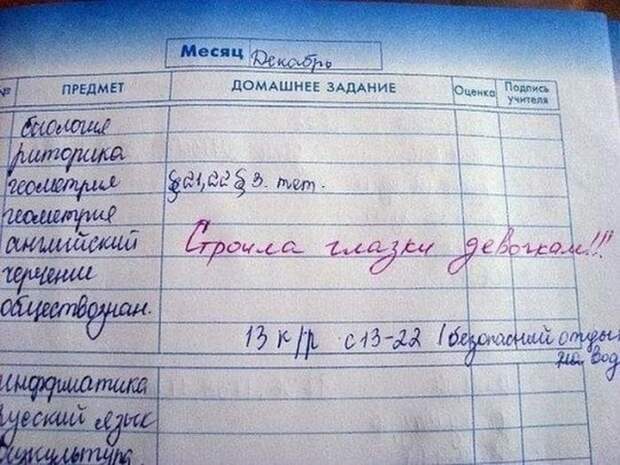 Месяц Декабрь
№ ПРЕДМЕТ ДОМАШНЕЕ ЗАДАНИЕ Оценка Подпись учителя
биология
риторика
геометрия § 21, 22 § 3. тет.
геометрия
английский Строила глазки девочкам!!!
черчение
обществознан.
13 к/р с 13-22 (безопасний отды
на вод
информатика
русский язык
физкультура